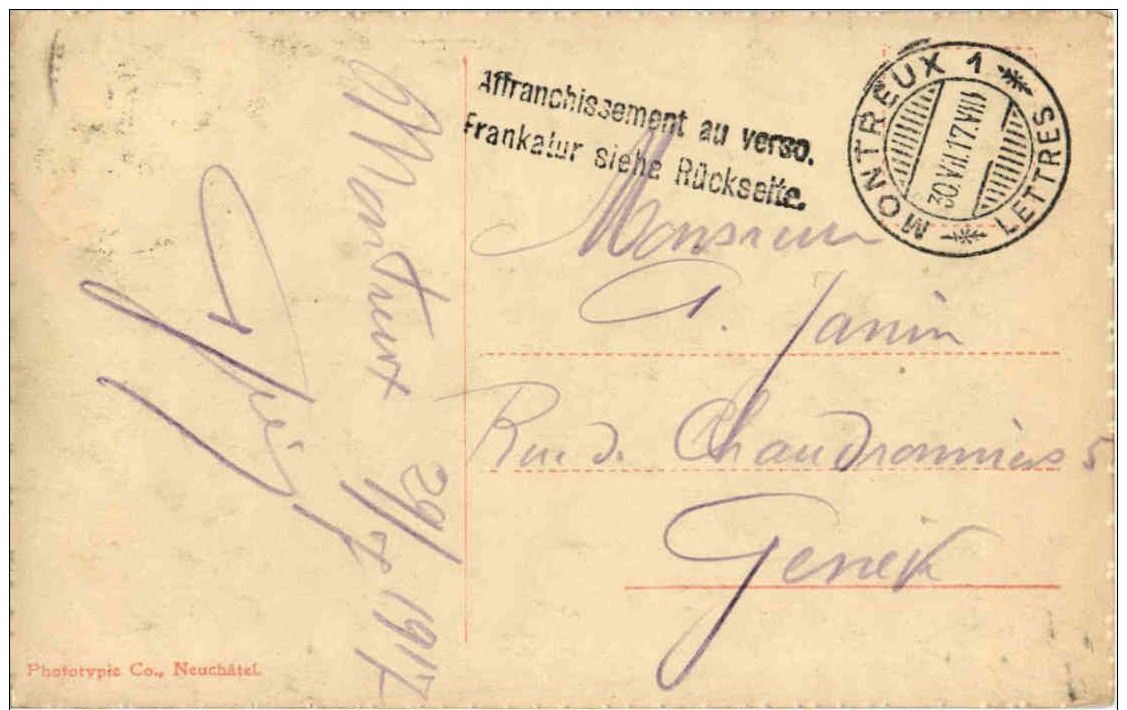 Affranchissement au verso.
Frankatur siehe Rückseite.
MONTREUX 1
30.VII.17.VIII
LETTRES
Monsieur
A. Janin
Rue d. Chaudronniers 5
Genève
Montreux 29/VII 1917
Phototypie Co., Neuchâtel.